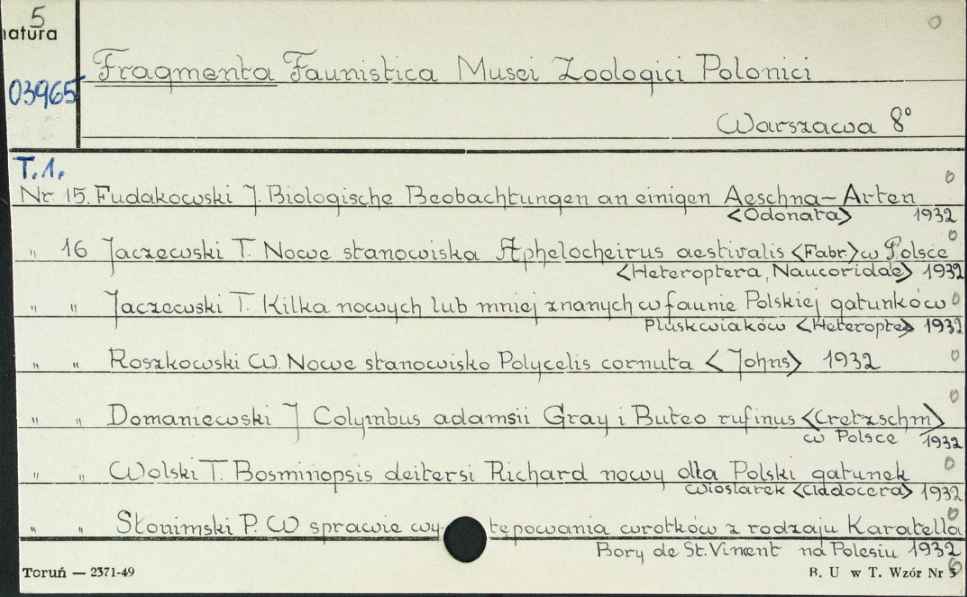 5
natura
03965
Fragmenta Faunistica Musei Zoologici Polonici
Warszawa 8°
T.1.
Nr 15. Fudakowski J. Biologische Beobachtungen an einigen Aeschna-Arten
<Odonata> 1932
" 16 Jaczewski T. Nowe stanowiska Aphelocheirus aestivalis <Fabr> w Polsce
<Heteroptera, Naucoridae> 1932
" " Jaczewski T. Kilka nowych lub mniej znanych w faunie Polskiej gatunków
Pluskwiaków <Heteropte> 1932
" " Roszkowski W. Nowe stanowisko Polycelis cornuta <Johns> 1932
" " Domaniewski J Colymbus adamsii Gray i Buteo rufinus <Cretzschm>
w Polsce 1932
" " Wolski T. Bosminopsis deitersi Richard nowy dla Polski gatunek
wioślarek <Cladocera> 1932
" " Słonimski P. W sprawie wy tępowania wrotków z rodzaju Karatella
Bory de St. Vincent na Polesiu 1932
Toruń — 2371-49
B. U w T. Wzór Nr 5